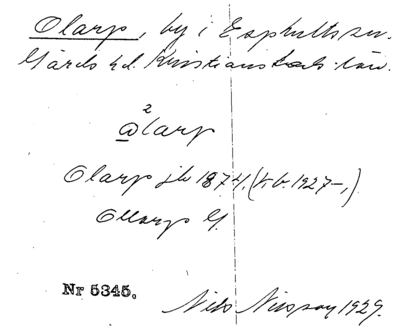 Olarp, by i Esphults sn.
Gärds hd. Kristianstads län.
2
@larp
Olarp jb 1874, (kb. 1927–,)
Ollarp G.
Nr 5345.
Nils Nilsson 1929.